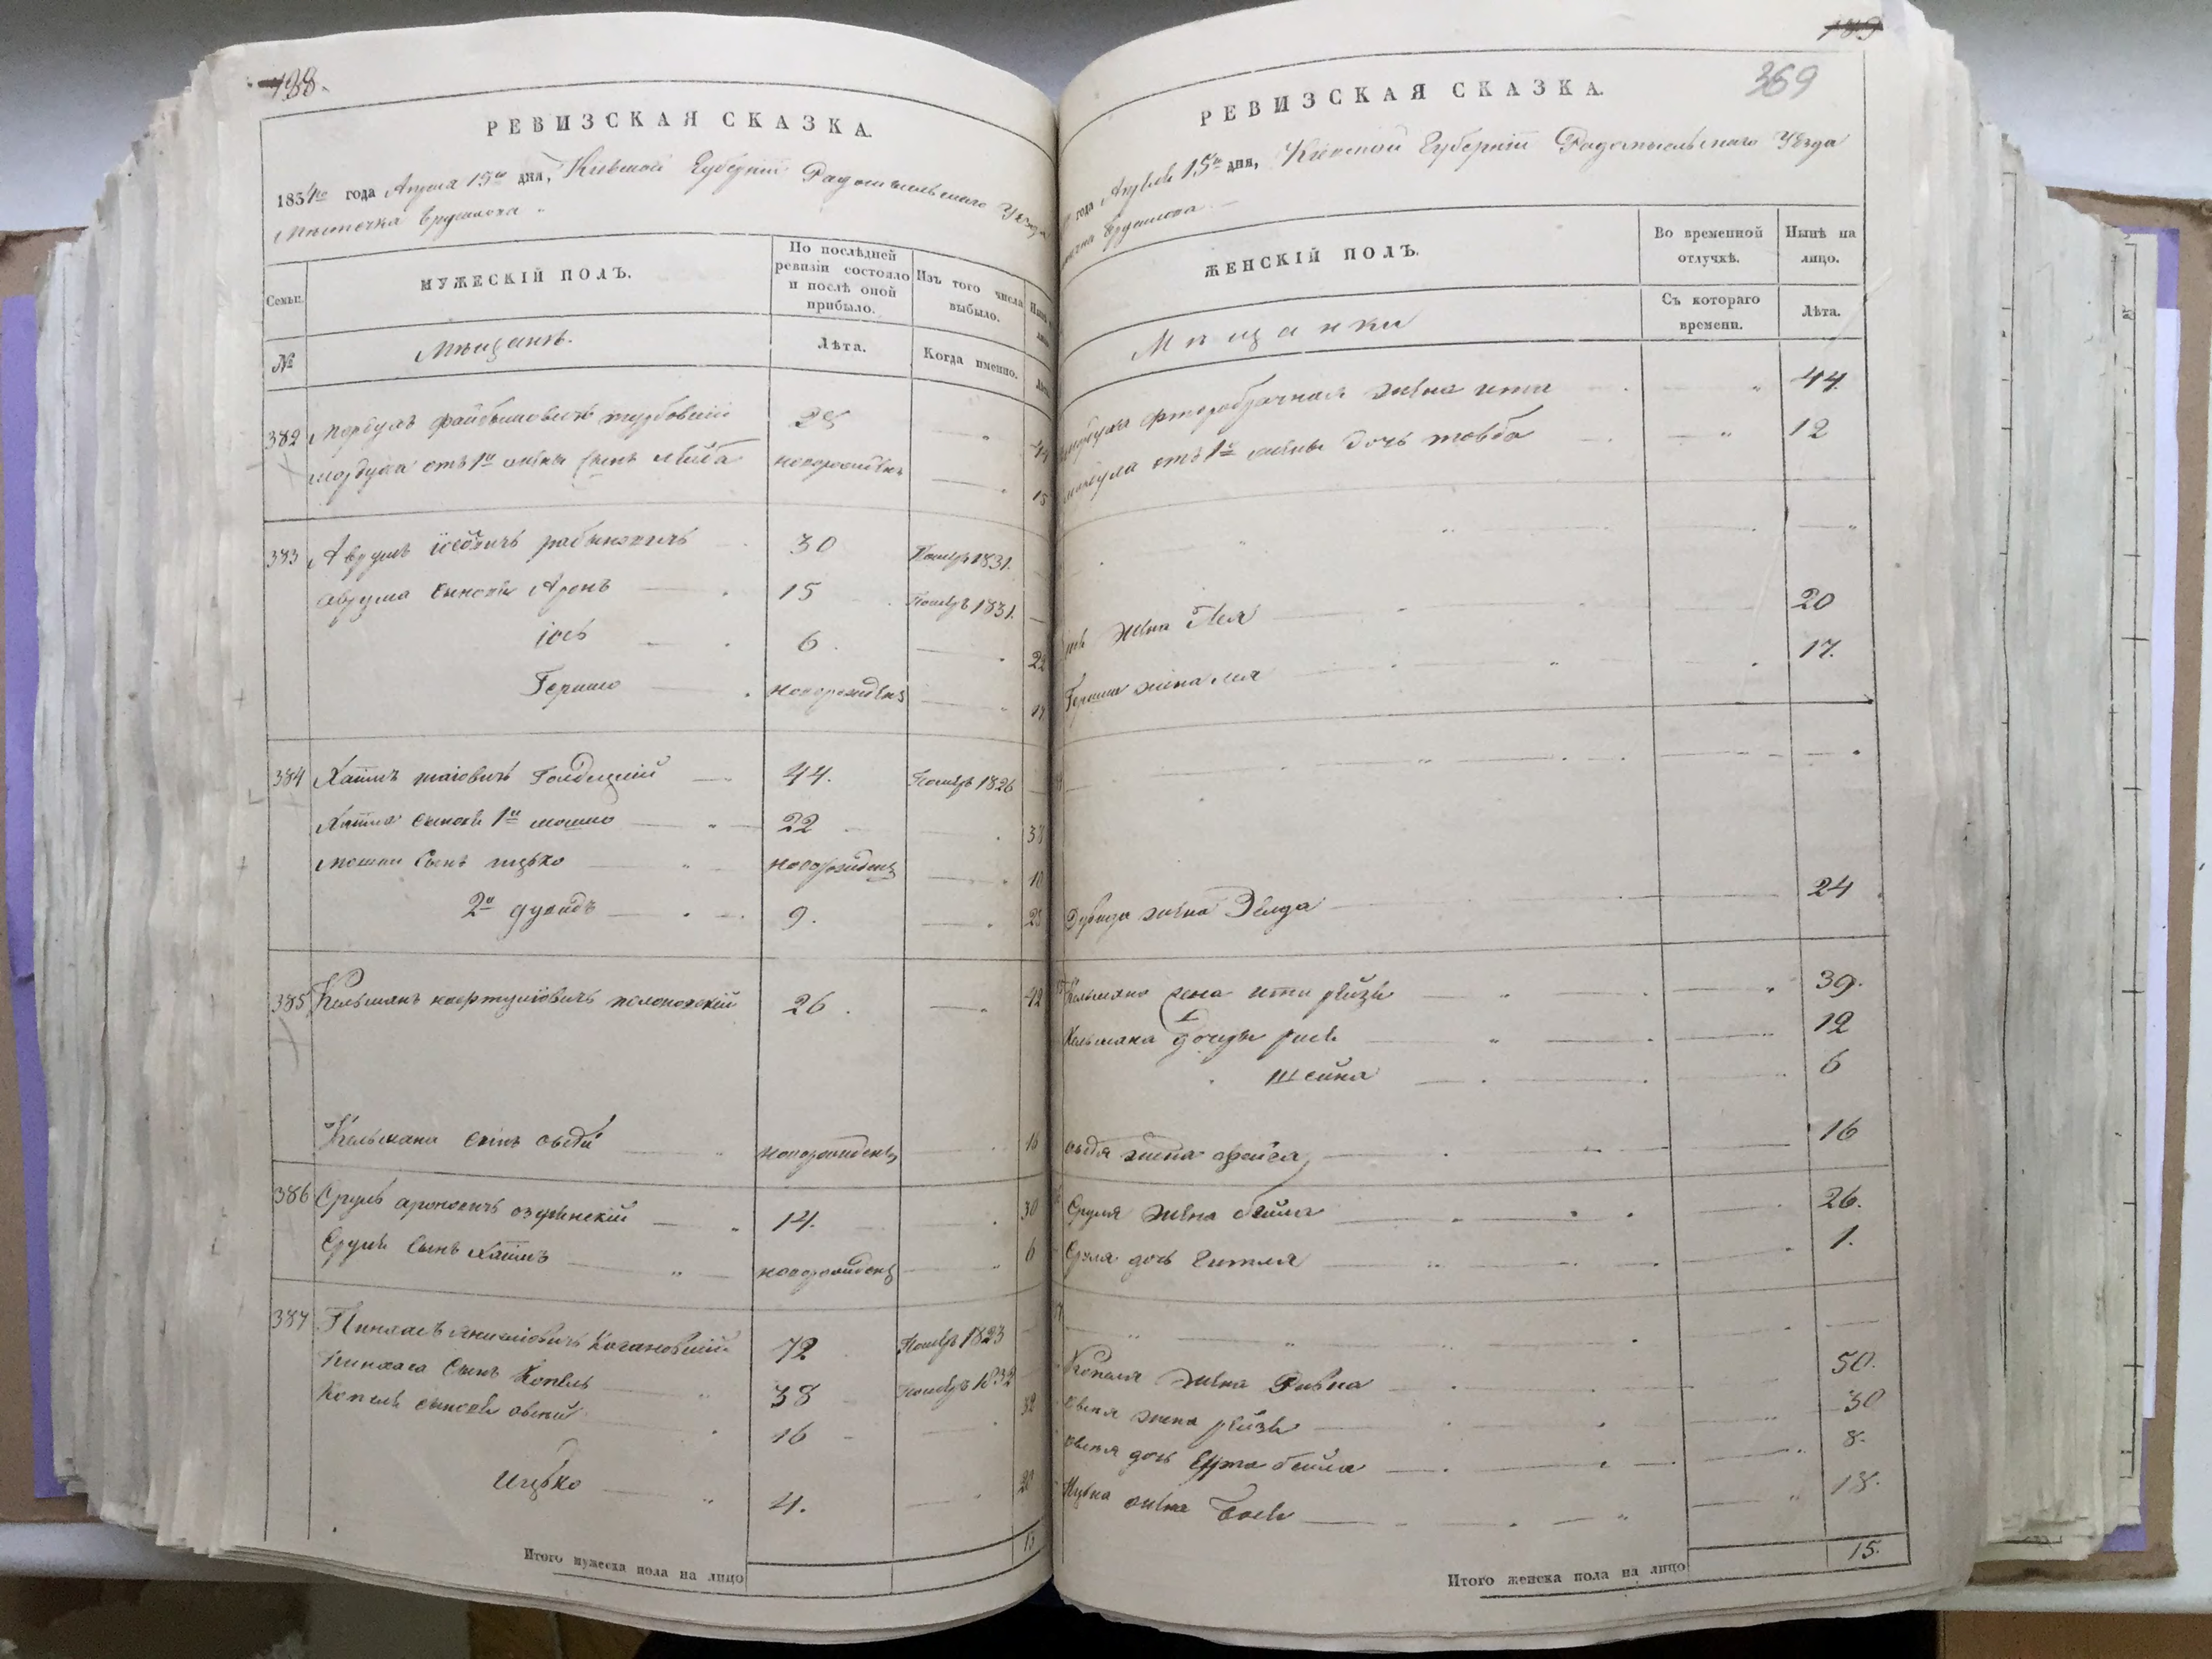 188.
РЕВИЗСКАЯ СКАЗКА.
1834го года Апреля 15го дня, Кіевской Губерніи Радомысльскаго Уѣзда
Мѣстечка Брусилова
Семьи.
МУЖЕСКІЙ ПОЛЪ.
По послѣдней ревизіи состояло и послѣ оной прибыло.
Изъ того числа выбыло.
№
Мѣщанѣ.
Лѣта.
Когда именно.
382 Мордухъ Файбишовичъ турбовскій 28
Мордуха отъ 1й жены сынъ Лейба новорожденъ 15
383 Аврумъ Іосѣовичъ рабиновичъ 30 Померъ 1831.
Аврума сыновья Аронъ 15 Померъ 1831.
Іось 6. 22
Гершко новорожденъ 17
384 Хаимъ Голдецкій 44. Померъ 1826
Хаима сыновья 1й мошко 22 38
Мошки сынъ ицько новорожденъ 10
2й дувидъ 9. 25
385 Кельманъ 26. 42
Кельмана сынъ овсѣй новорожденъ 16
386 Сруль ароновичъ озерянскій 14. 30
Сруля сынъ Хаимъ новорожденъ 6
387 Пинхасъ Кагановскій 72 Померъ 1823
Пинхаса сынъ Копель 38 Померъ 1832
Копеля сыновья овсей 16 32
Ицько 4. 20
15
Итого мужеска пола на лицо
189
369
РЕВИЗСКАЯ СКАЗКА.
года Апреля 15го дня, Кіевской Губерніи Радомысльскаго Уѣзда
Брусилова
ЖЕНСКІЙ ПОЛЪ.
Во временной отлучкѣ.
Нынѣ на лицо.
Мѣщанки
Съ котораго времени.
Лѣта.
Мордуха фторобрачная жена ита 44.
Мордуха отъ 1й жены дочь товба 12
жена 20
Гершка жена лея 17.
Дувида жена 24
Кельмана жена ити рейзя 39.
Кельмана дочери рися 12
Шейна 6
овсѣя жена фейга 16
Сруля жена бейла 26.
Сруля дочь гитля 1.
Копеля жена Ривка 50.
овсея жена рейзя 30
овсея дочь бейла 8.
Ицька жена Бася 18.
15.
Итого женска пола на лицо